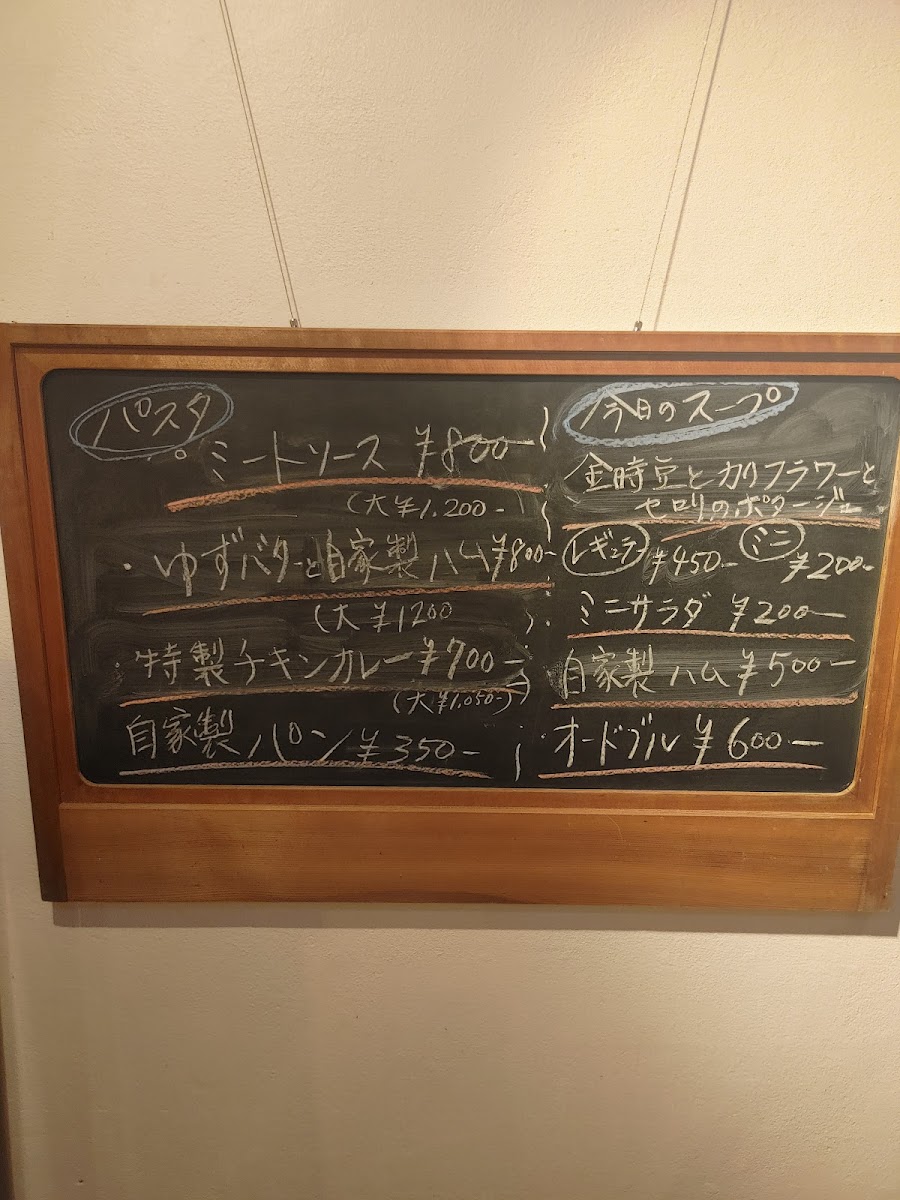 パスタ
・ミートソース ¥800-
(大¥1,200-
・ゆずバターと自家製ハム¥800-
(大¥1200
・特製チキンカレー¥700-
(大¥1,050-)
自家製パン¥350-
今日のスープ
金時豆とカリフラワーと
セロリのポタージュ
レギュラー ¥450- ミニ ¥200-
ミニサラダ ¥200-
自家製ハム¥500-
・オードブル ¥600-